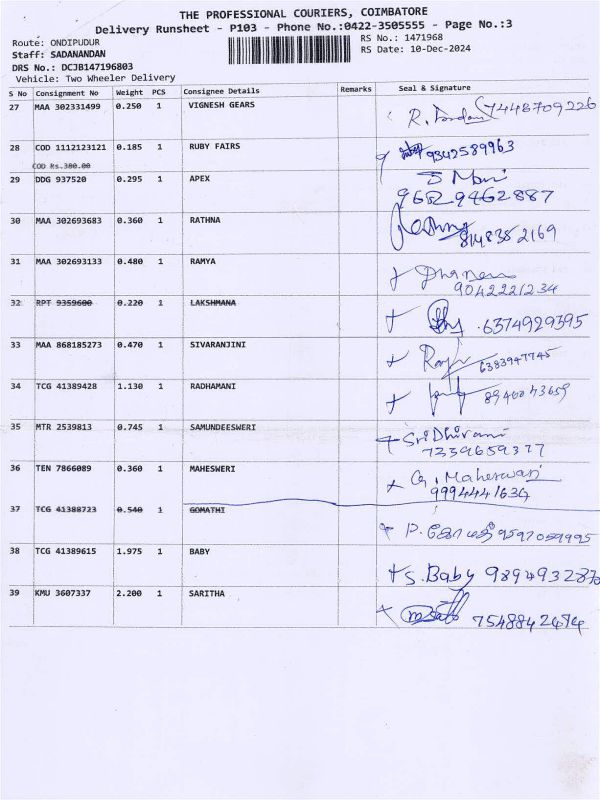 THE PROFESSIONAL COURIERS, COIMBATORE
Delivery Runsheet - P103 - Phone No.:0422-3505555 - Page No.:3
Route: ONDIPUDUR RS No.: 1471968
Staff: SADANANDAN RS Date: 10-Dec-2024
DRS No.: DCJB147196803
Vehicle: Two Wheeler Delivery
S No Consignment No Weight PCS Consignee Details Remarks Seal & Signature
27 MAA 302331499 0.250 1 VIGNESH GEARS 7448709226
28 COD 1112123121 0.185 1 RUBY FAIRS 9342589963
COD Rs.300.00
29 DDG 937520 0.295 1 APEX J Mani
9629462887
30 MAA 302693683 0.360 1 RATHNA 8148352169
31 MAA 302693133 0.480 1 RAMYA
9042221234
32 RPT 9359600 0.220 1 LAKSHMANA 6374929395
33 MAA 868185273 0.470 1 SIVARANJINI 6383947745
34 TCG 41389428 1.130 1 RADHAMANI
35 MTR 2539813 0.745 1 SAMUNDEESWERI Sri Dhivani
7339659377
36 TEN 7866089 0.360 1 MAHESWERI G. Maheswari
9994441634
37 TCG 41388723 0.540 1 GOMATHI P. கோமதி 9597059995
38 TCG 41389615 1.975 1 BABY S. Baby
39 KMU 3607337 2.200 1 SARITHA 7548842474